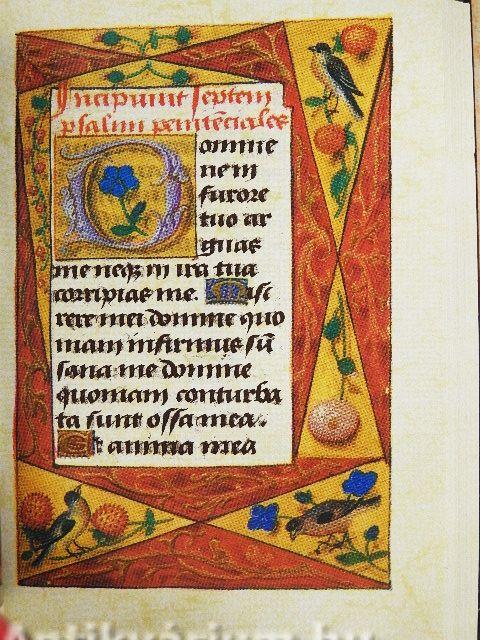 Incipiunt septem
psalmi penitēciales
Domine
ne in
furore
tuo ar
guas
me neq3 in ira tua
corripias me. Mise
rere mei domine quo
niam infirmus sū
sana me domine
quoniam conturba
ta sunt ossa mea.
Et anima mea
Antikvárium.hu